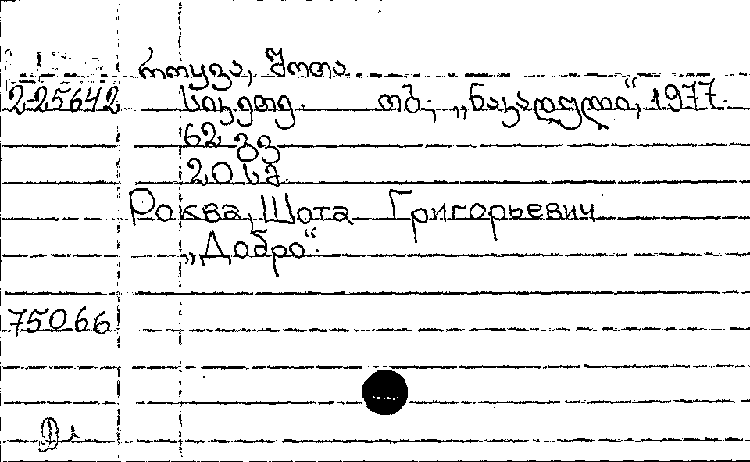 როყვა, შოთა
2-25642 სიკეთე. თბ., „ნაკადული“, 1977.
62 გვ
20 კპ
Роква, Шота Григорьевич
„Добро“.
75066